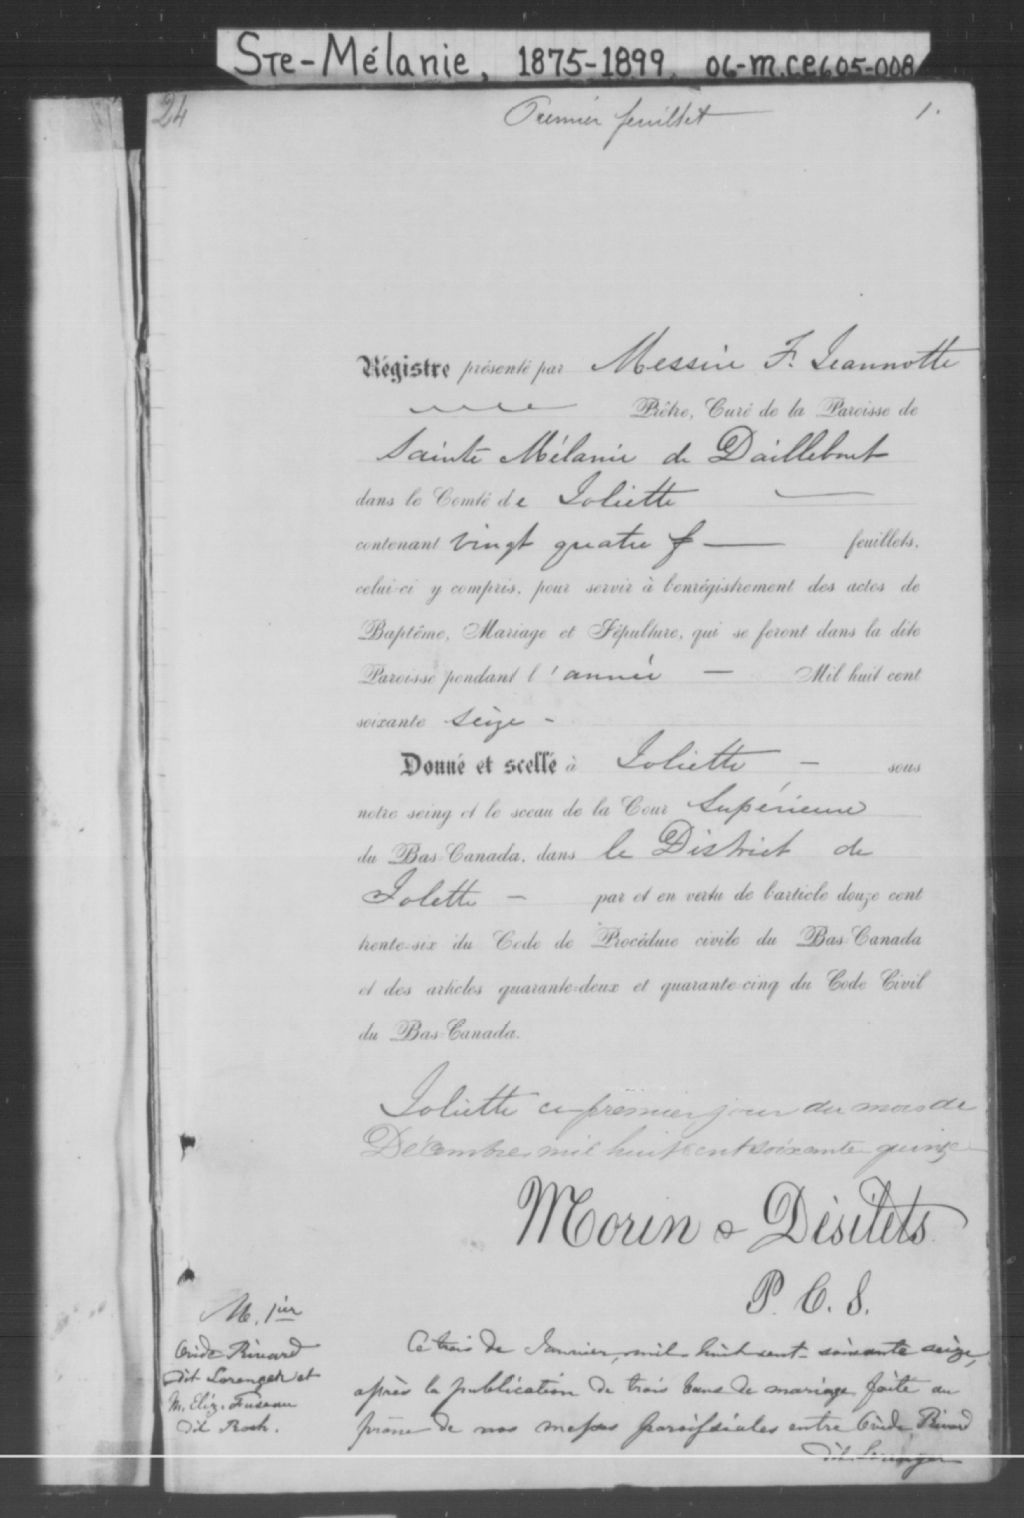 Ste-Mélanie, 1875-1899, 06-M.CE605-008
24
Premier feuillet
1.
Régistre présenté par Messire F. Jeannotte
Prêtre, Curé de la Paroisse de
Sainte Mélanie de Daillebout
dans le Comté de Joliette
contenant vingt quatre feuillets,
celui-ci y compris, pour servir à l'enrégistrement des actes de
Baptême, Mariage et Sépulture, qui se feront dans la dite
Paroisse pendant l'année — Mil huit cent
soixante seize -
Donné et scellé à Joliette — sous
notre seing et le sceau de la Cour Supérieure
du Bas-Canada, dans le District de
Jolette — par et en vertu de l'article douze cent
trente-six du Code de Procédure civile du Bas-Canada
et des articles quarante-deux et quarante-cinq du Code Civil
du Bas-Canada.
Joliette ce premier jour du mois de
Décembre mil huit cent soixante quinze
Morin & Désilets
P. C. S.
M. 1ier
Rivard
dit Loranger et
M. Eliz.
dit Roch.
Ce trois de Janvier, mil huit cent soixante seize,
après la publication de trois bans de mariage faite au
prône de nos messes paroissiales entre Rivard
dit Loranger